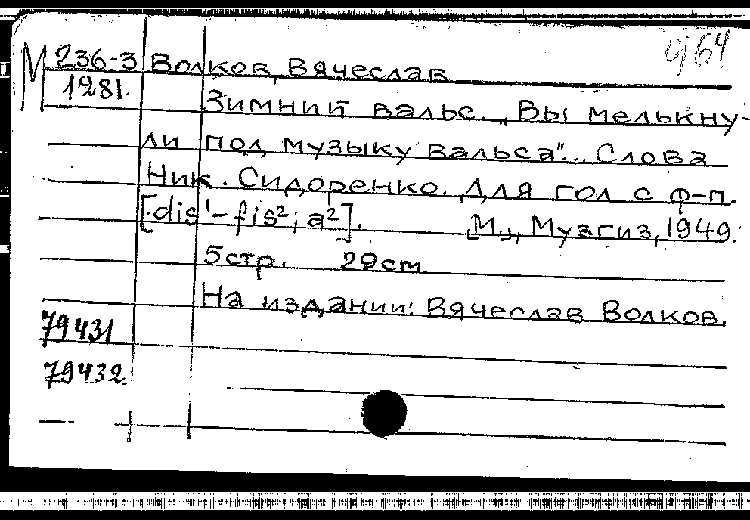 М 236-3 Волков, Вячеслав
1281.
Зимний вальс. „Вы мелькну-
ли под музыку вальса".. Слова
Ник. Сидоренко. Для гол с ф-п.
[dis¹-fis²; a²]. [М.], Музгиз, 1949.
5стр. 29cm
На издании: Вячеслав Волков.
79431
79432